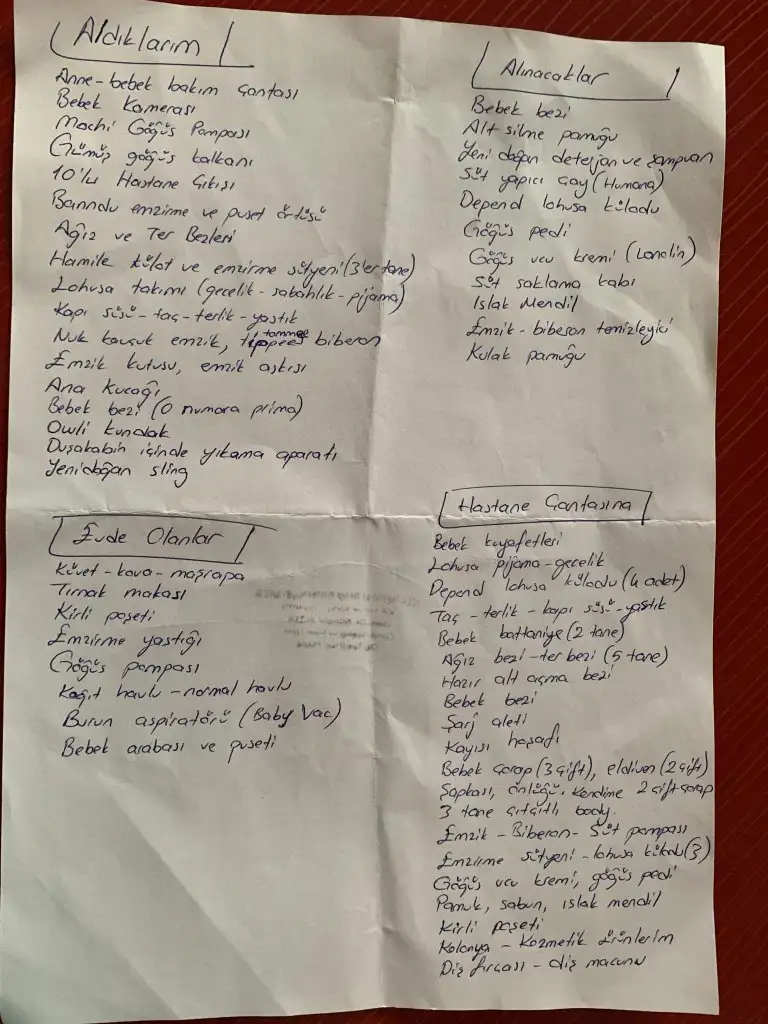 Aldıklarım
Anne-bebek bakım çantası
Bebek Kamerası
Mochi Göğüs Pompası
Gümüş göğüs kalkanı
10'lu Hastane Çıkışı
Banndu emzirme ve puset örtüsü
Ağız ve Ter Bezleri
Hamile külot ve emzirme sütyeni (3'er tane)
Lohusa takımı (gecelik-sabahlık-pijama)
Kapı süsü-taç-terlik-yastık
Nuk kauçuk emzik, tommee tippee biberon
Emzik kutusu, emzik askısı
Ana Kucağı
Bebek bezi (0 numara prima)
Owli kundak
Duşakabin içinde yıkama aparatı
Yenidoğan sling
Alınacaklar
Bebek bezi
Alt silme pamuğu
Yeni doğan deterjan ve şampuan
Süt yapıcı çay (Humana)
Depend lohusa külodu
Göğüs pedi
Göğüs ucu kremi (Lanolin)
Süt saklama kabı
Islak Mendil
Emzik-biberon temizleyici
Kulak pamuğu
Evde Olanlar
Küvet-kova-maşrapa
Tırnak makası
Kirli poşeti
Emzirme yastığı
Göğüs pompası
Kağıt havlu-normal havlu
Burun aspiratörü (Baby Vac)
Bebek arabası ve puseti
Hastane Çantasına
Bebek kıyafetleri
Lohusa pijama-gecelik
Depend lohusa külodu (4 adet)
Taç-terlik-kapı süsü-yastık
Bebek battaniye (2 tane)
Ağız bezi-ter bezi (5 tane)
Hazır alt açma bezi
Bebek bezi
Şarj aleti
Kayısı hoşafı
Bebek çorap (3 çift), eldiven (2 çift)
Şapkası, önlüğü, kendime 2 çift çorap
3 tane çıtçıtlı body.
Emzik-Biberon-Süt pompası
Emzirme sütyeni-lohusa külodu (3)
Göğüs ucu kremi, göğüs pedi
Pamuk, sabun, ıslak mendil
Kirli poşeti
Kolonya-Kozmetik ürünlerim
Diş fırçası-diş macunu